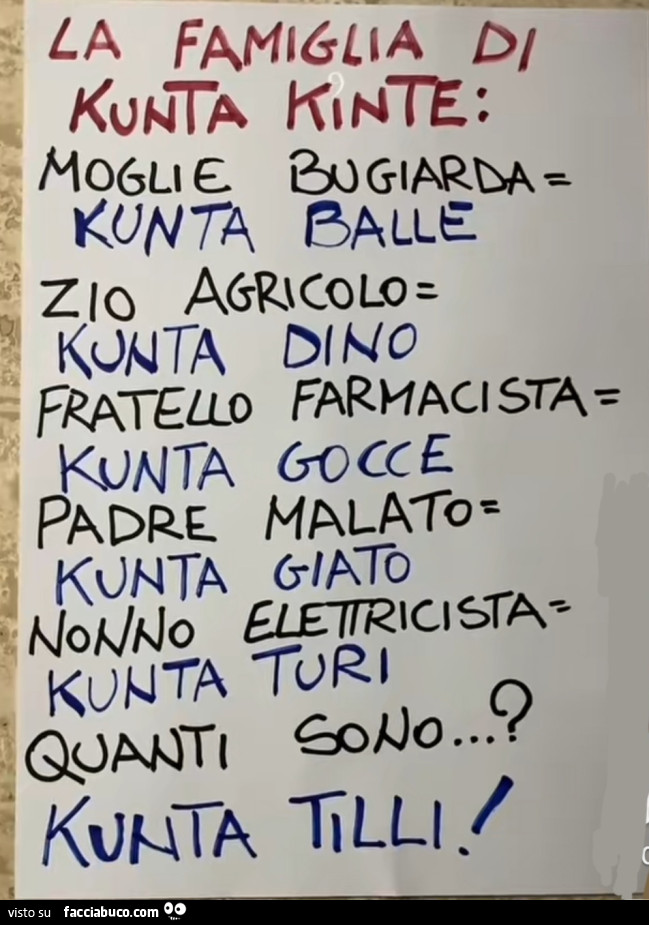 LA FAMIGLIA DI
KUNTA KINTE:
MOGLIE BUGIARDA=
KUNTA BALLE
ZIO AGRICOLO=
KUNTA DINO
FRATELLO FARMACISTA=
KUNTA GOCCE
PADRE MALATO=
KUNTA GIATO
NONNO ELETTRICISTA=
KUNTA TURI
QUANTI SONO...?
KUNTA TILLI!
visto su facciabuco.com